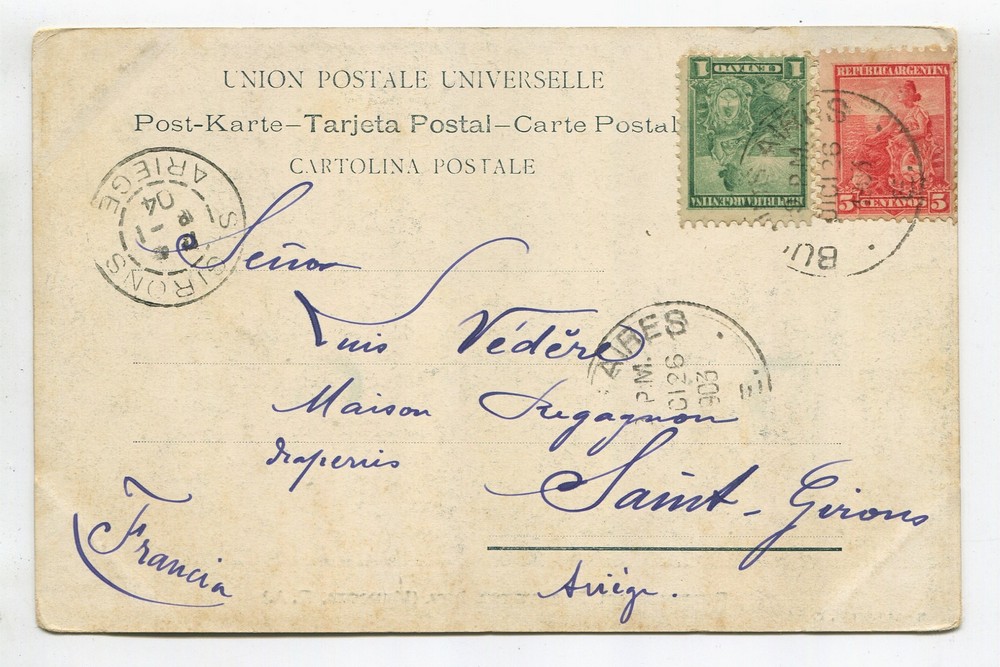 UNION POSTALE UNIVERSELLE
Post-Karte—Tarjeta Postal—Carte Postal
CARTOLINA POSTALE
CENTAVO
1
1
REPUBLICA ARGENTINA
REPUBLICA ARGENTINA
5 CENTAVOS 5
AIRES
P.M.
DIC 26
BU
ST GIRONS
ARIEGE
04
Señor
Luis Védère
AIRES
P.M.
IC 26
903
Maison Regagnon
draperies
Saint-Girons
Francia
Ariège.